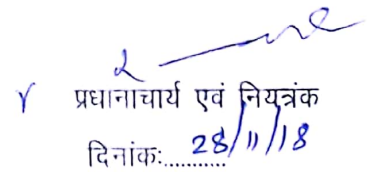 प्रधानाचार्य एवं नियत्रंक
दिनांकः........... 28/11/18